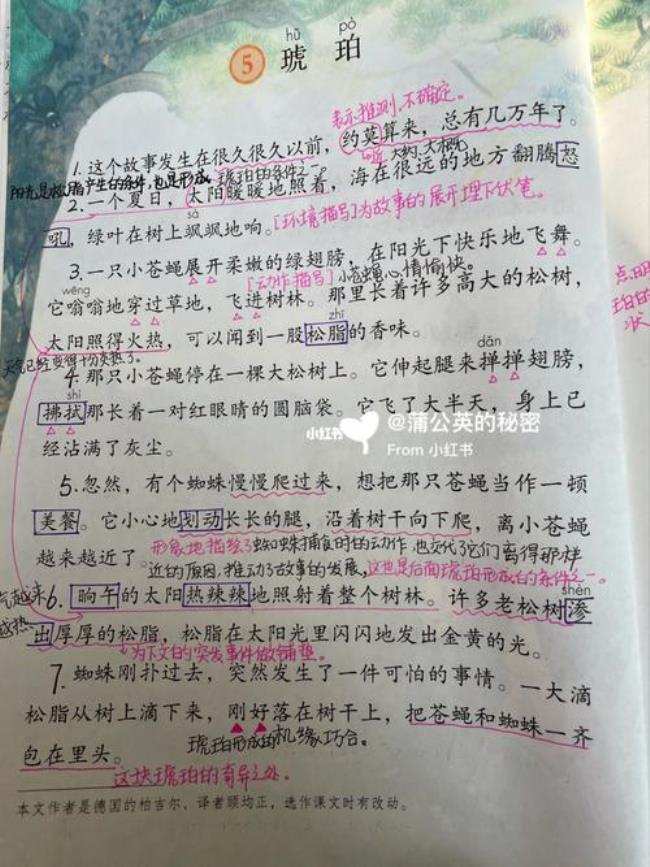 hǔ pò
5 琥珀
表示推测,不确定。
1.这个故事发生在很久很久以前,约莫算来,总有几万年了。
大约、大概
阳光是松脂产生的条件,也是形成琥珀的条件之一。
2.一个夏日,太阳暖暖地照着,海在很远的地方翻腾怒
sà
吼,绿叶在树上飒飒地响。[环境描写]为故事的展开埋下伏笔。
3.一只小苍蝇展开柔嫩的绿翅膀,在阳光下快乐地飞舞。
[动作描写]小苍蝇心情愉快。
wēng
它嗡嗡地穿过草地,飞进树林。那里长着许多高大的松树,
zhī
太阳照得火热,可以闻到一股松脂的香味。
天气已经变得十分炎热了。
dǎn
4.那只小苍蝇停在一棵大松树上。它伸起腿来掸掸翅膀,
shì
拂拭那长着一对红眼睛的圆脑袋。它飞了大半天,身上已
经沾满了灰尘。
小红书 @蒲公英的秘密
From 小红书
5.忽然,有个蜘蛛慢慢爬过来,想把那只苍蝇当作一顿
美餐。它小心地划动长长的腿,沿着树干向下爬,离小苍蝇
越来越近了。
形象地描绘了蜘蛛捕食时的动作,也交代了它们离得那样
近的原因,推动了故事的发展,这也是后面琥珀形成的条件之一。
气越来
越热
shèn
6.晌午的太阳热辣辣地照射着整个树林。许多老松树渗
出厚厚的松脂,松脂在太阳光里闪闪地发出金黄的光。
为下文的突发事件做铺垫。
7.蜘蛛刚扑过去,突然发生了一件可怕的事情。一大滴
松脂从树上滴下来,刚好落在树干上,把苍蝇和蜘蛛一齐
琥珀形成的机缘巧合。
包在里头。
这块琥珀的奇异之处。
本文作者是德国的柏吉尔,译者顾均正,选作课文时有改动。
点明
珀的
状